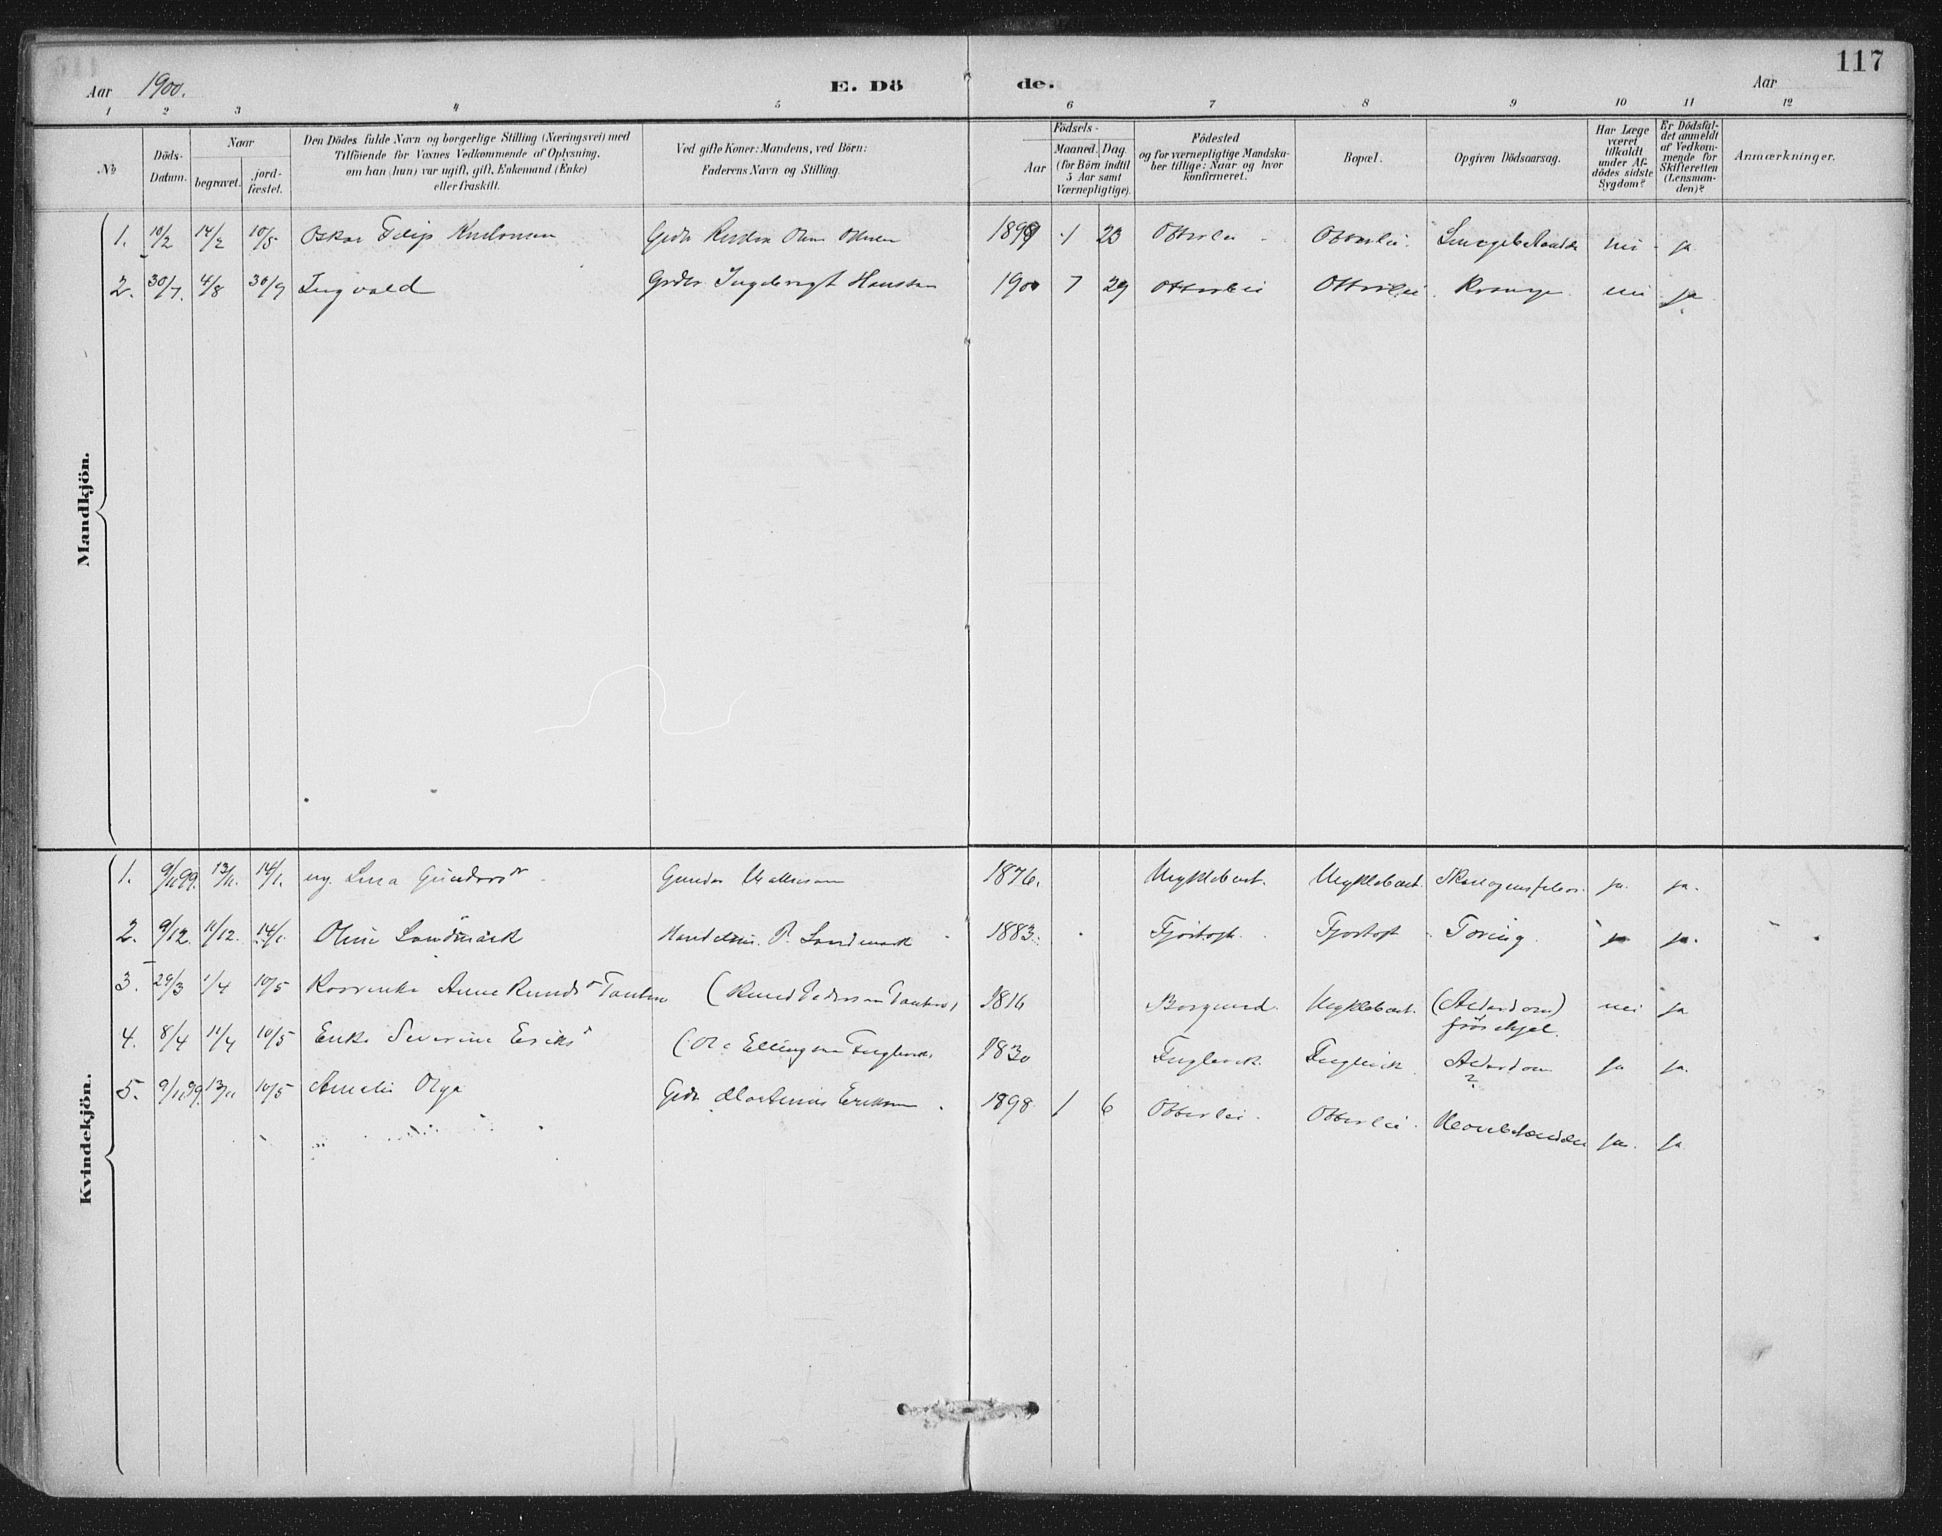 117
Aar 1900. E. Dö de. Aar
1 2 3 4 5 6 7 8 9 10 11 12
No
Döds-Datum.
Naar
begravet.
jord-fæstet.
Den Dödes fulde Navn og borgerlige Stilling (Næringsvei) med
Tilföiende for Voxnes Vedkommende af Oplysning,
om han (hun) var ugift, gift, Enkemand (Enke)
eller fraskilt.
Ved gifte Koner: Mandens, ved Börn:
Faderens Navn og Stilling.
Födsels-
Aar
Maaned. Dag.
(for Börn indtil
5 Aar samt
Værnepligtige).
Födested
og for værnepligtige Mandska-
ber tillige: Naar og hvor
konfirmeret.
Bopæl.
Opgiven Dödsaarsag.
Har Læge
været
tilkaldt
under Af-
dödes sidste
Sygdom?
Er Dödsfal-
det anmeldt
af Vedkom-
mende for
Skifteretten
(Lensman-
den)?
Anmærkninger.
Mandkjön.
1. 10/2 14/2 10/5 Oskar Filip Knudsen Grdr 1899 1 23 Otterlei Otterlei. nei ja
2. 30/7. 4/8 30/9 Ingvald Grdbr. Ingebrigt Hansen 1900 7 29 Otterlei Otterlei. nei ja
Kvindekjön.
1. 9/11 99. 13/11. 14/1. ug. Lina Gundersdr Gunder 1876. Myklebost. Myklebost. ja. ja.
2. 9/12. 11/12. 14/1. Oline Landmark Handelsm. P. Landmark 1883. Fjørtoft. Fjørtoft Tæring. ja ja.
3. 29/3 1/4 10/5 Anne Knudsdr (Knud Pedersen 1816 Borgund. Myklebost. (Alderdom) nei ja
4. 8/4 11/4 10/5 Enke Severine Eriksdr (Ole Ellingsen Fuglevik 1830 Fuglevik. Fuglevik. Alderdom ja ja.
?
5. 9/11 99. 13/11 10/5 Amalie Olga Grdr. Martinus Eriksen. 1898. 1 6 Otterlei. Otterlei. ja. ja